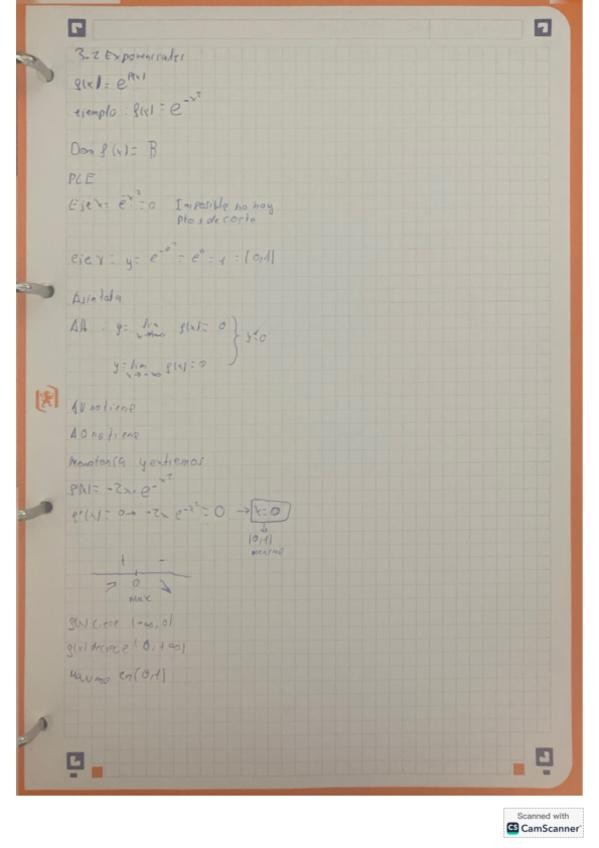 3.2 Exponenciales
f(x) = e^p(x)
ejemplo: f(x) = e^-x²
Dom f(x) = R
PCE
Eje x = e^-x² = 0 Imposible no hay
ptos de corte
eje y = y = e^-0² = e^0 = 1 = (0,1)
Asintota
AH : y = lim f(x) = 0 } y=0
y = lim f(x) = 0
AV no tiene
AO no tiene
Monotonía y extremos
f'(x) = -2x · e^-x²
f'(x) = 0 → -2x e^-x² = 0 → x=0
(0,1)
+ -
0
max
f(x) crece (-∞, 0)
f(x) decrece (0, +∞)
Maximo en (0,1)
Scanned with
CS CamScanner